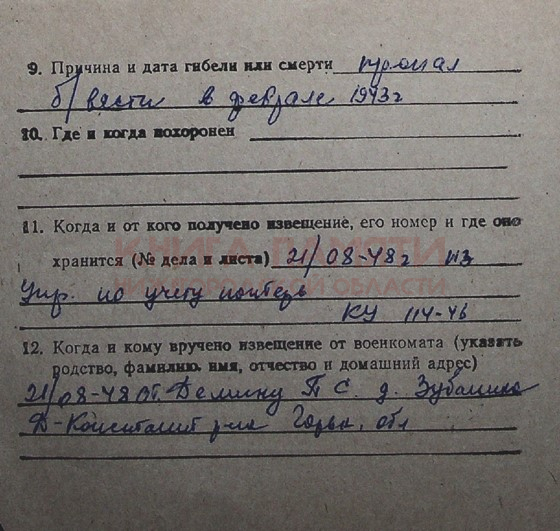 9. Причина и дата гибели или смерти пропал
б/вести в феврале 1943 г
10. Где и когда похоронен
11. Когда и от кого получено извещение, его номер и где оно
КНИГА ПАМЯТИ
хранится (№ дела и листа) 21/08-48 г из
ОБЛАСТИ
Упр. по учету потерь
КУ 114-46
12. Когда и кому вручено извещение от военкомата (указать
родство, фамилию, имя, отчество и домашний адрес)
21/08-48 от. Демину П С. д.
Д-Константин р-на Горьк. обл